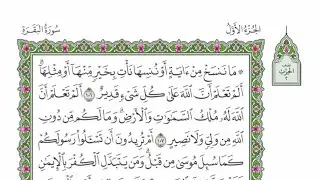 الجزء الأول
سورة البقرة
۞ مَا نَنسَخْ مِنْ ءَايَةٍ أَوْ نُنسِهَا نَأْتِ بِخَيْرٍ مِّنْهَآ أَوْ مِثْلِهَآ
أَلَمْ تَعْلَمْ أَنَّ ٱللَّهَ عَلَىٰ كُلِّ شَىْءٍ قَدِيرٌ ١٠٦ أَلَمْ تَعْلَمْ أَنَّ
ٱللَّهَ لَهُۥ مُلْكُ ٱلسَّمَٰوَٰتِ وَٱلْأَرْضِ وَمَا لَكُم مِّن دُونِ
ٱللَّهِ مِن وَلِىٍّ وَلَا نَصِيرٍ ١٠٧ أَمْ تُرِيدُونَ أَن تَسْـَٔلُوا۟ رَسُولَكُمْ
كَمَا سُئِلَ مُوسَىٰ مِن قَبْلُ وَمَن يَتَبَدَّلِ ٱلْكُفْرَ بِٱلْإِيمَٰنِ